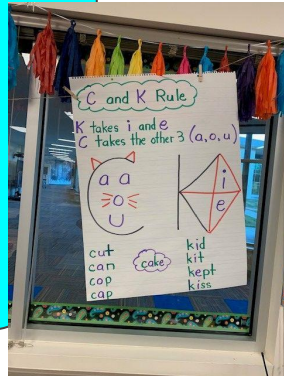 C and K Rule
K takes i and e
C takes the other 3 (a,o,u)
a a
o
u
i
e
cut
can
cop
cap
cake
kid
kit
kept
kiss